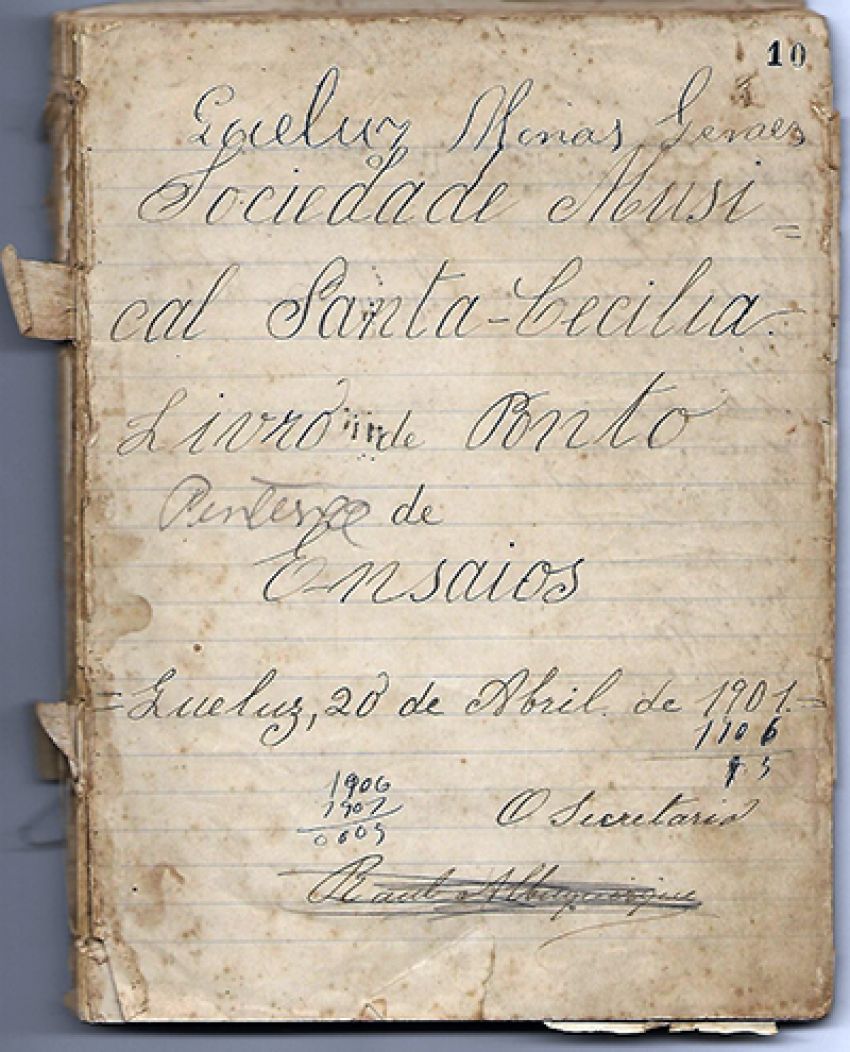 10
Queluz Minas Geraes
Sociedade Musi=
cal Santa-Cecilia.
Livro de Ponto
de
Ensaios
=Queluz, 20 de Abril. de 1901.=
1906
1906
1901
0005
O Secretario
Raul Albuquerque